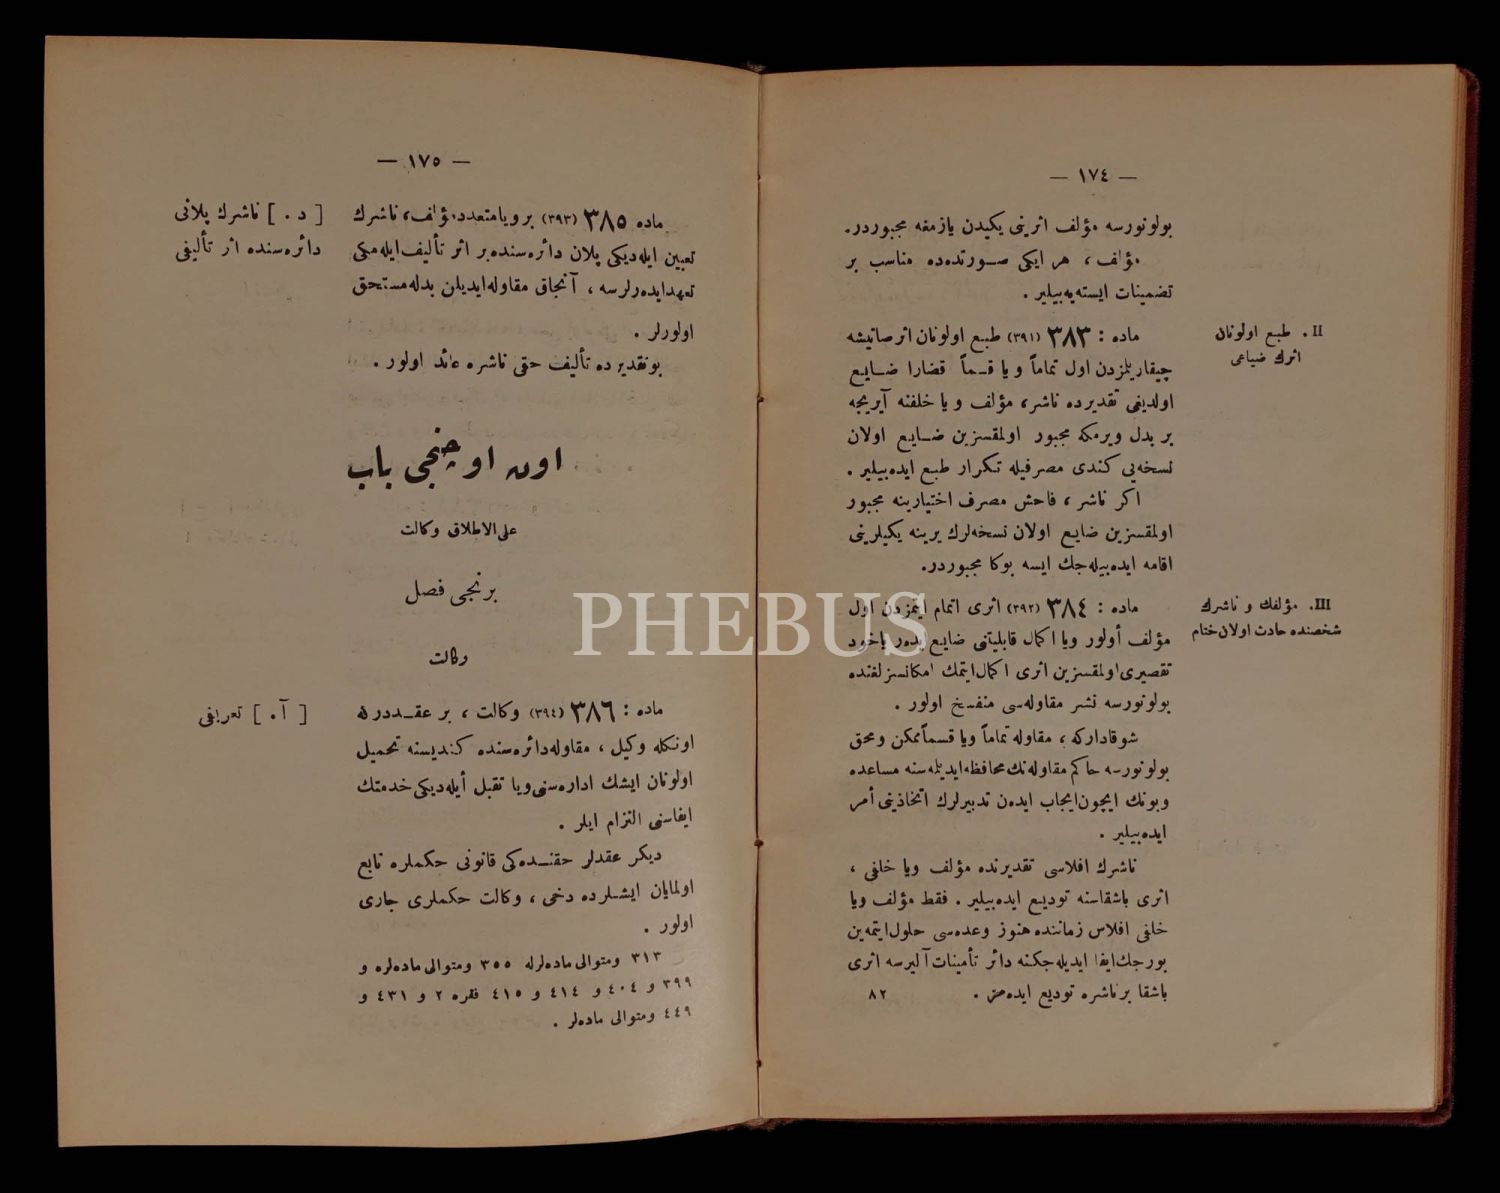 — ١٧٤ —
بولونورسه مؤلف اثرينى يكيدن يازمغه مجبوردر.
مؤلف ، هر ايكى صورتده ده مناسب بر
تضمينات ايسته يه بيلير .
II . طبع اولونان
اثرك ضياعى
ماده : ٣٨٣ (٣٩١) طبع اولونان اثر صاتيشه
چيقاريلمزدن اول تماماً ويا قسماً قضارا ضايع
اولديغى تقديرده ناشر، مؤلف ويا خلفنه آيريجه
بر بدل ويرمكه مجبور اولمقسزين ضايع اولان
نسخه يى كندى مصرفيله تكرار طبع ايده بيلير .
اكر ناشر ، فاحش مصرف اختيارينه مجبور
اولمقسزين ضايع اولان نسخه لرك يرينه يكيلرينى
اقامه ايده بيله جك ايسه بوكا مجبوردر.
III. مؤلفك و ناشرك
شخصنده حادث اولان ختام
ماده : ٣٨٤ (٣٩٢) اثرى اتمام ايتمزدن اول
مؤلف أولور ويا اكمال قابليتنى ضايع ايدر ياخود
تقصيرى اولمقسزين اثرى اكمال ايتمك امكانسزلغنده
بولونورسه نشر مقاوله سى منفسخ اولور .
شو قادار كه ، مقاوله تماماً ويا قسماً ممكن ومحق
بولونورسه حاكم مقاوله نك محافظه ايديلمه سنه مساعده
وبونك ايچون ايجاب ايدن تدبيرلرك اتخاذينى أمر
ايده بيلير .
ناشرك افلاسى تقديرنده مؤلف ويا خلفى ،
اثرى باشقاسنه توديع ايده بيلير . فقط مؤلف ويا
خلفى افلاس زماننده هنوز وعده سى حلول ايتمه ين
بورجك ايفا ايديله جكنه دائر تأمينات آليرسه اثرى
باشقا بر ناشره توديع ايده مز .
٨٢
— ١٧٥ —
[ د . ] ناشرك پلانى
دائره سنده اثر تأليفى
ماده ٣٨٥ (٣٩٣) بر ويا متعدد مؤلف، ناشرك
تعيين ايله ديكى پلان دائره سنده بر اثر تأليف ايله مكى
تعهد ايده رلرسه ، آنجاق مقاوله ايديلن بدله مستحق
اولورلر .
بو تقديرده تأليف حقى ناشره عائد اولور .
اون اوچنجى باب
على الاطلاق وكالت
برنجى فصل
وكالت
[ آ. ] تعريفى
ماده : ٣٨٦ (٣٩٤) وكالت ، بر عقددر كه
اونكله وكيل ، مقاوله دائره سنده كنديسنه تحميل
اولونان ايشك اداره سنى ويا تقبل أيله ديكى خدمتك
ايفاسنى التزام ايلر .
ديكر عقدلر حقنده كى قانونى حكملره تابع
اولمايان ايشلرده دخى ، وكالت حكملرى جارى
اولور .
٣١٣ ومتوالى ماده لرله ٣٥٥ ومتوالى ماده لره و
٣٩٩ و ٤٠٤ و ٤١٤ و ٤١٥ فقره ٢ و ٤٣١ و
٤٤٩ ومتوالى ماده لر .
PHEBUS